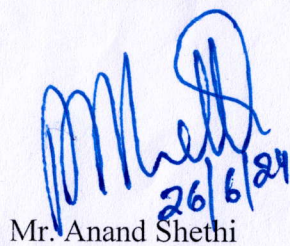 26/6/24
Mr. Anand Shethi